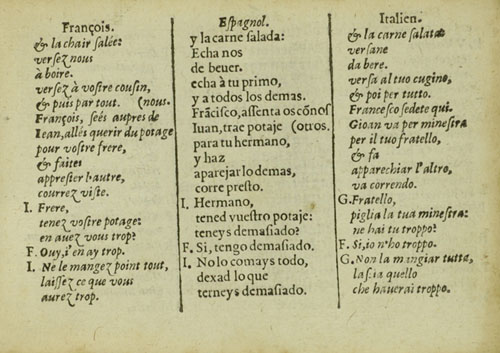 François.
& la chair salée:
versez nous
à boire.
versez à vostre cousin,
& puis par tout. (nous.
François, seés aupres de
Iean, allés querir du potage
pour vostre frere,
& faites
apprester l'autre,
courrez viste.
I. Frere,
tenez vostre potage:
en auez vous trop?
F. Ouy, i'en ay trop.
I. Ne le mangez point tout,
laissez ce que vous
aurez trop.
Espagnol.
y la carne salada:
Echa nos
de beuer.
echa à tu primo,
y a todos los demas.
Frãcisco, assenta os cõnos
Iuan, trae potaje (otros.
para tu hermano,
y haz
aparejar lo demas,
corre presto.
I. Hermano,
tened vuestro potaje:
teneys demasiado?
F. Si, tengo demasiado.
I. No lo comays todo,
dexad lo que
terneys demasiado.
Italien.
& la carne salata:
versane
da bere.
versa al tuo cugino,
& poi per tutto.
Francesco sedete qui.
Gioan va per minestra
per il tuo fratello,
& fa
apparechiar l'altro,
va correndo.
G. Fratello,
piglia la tua minestra:
ne hai tu troppo?
F. Si, io n'ho troppo.
G. Non la mangiar tutta,
lascia quello
che hauerai troppo.